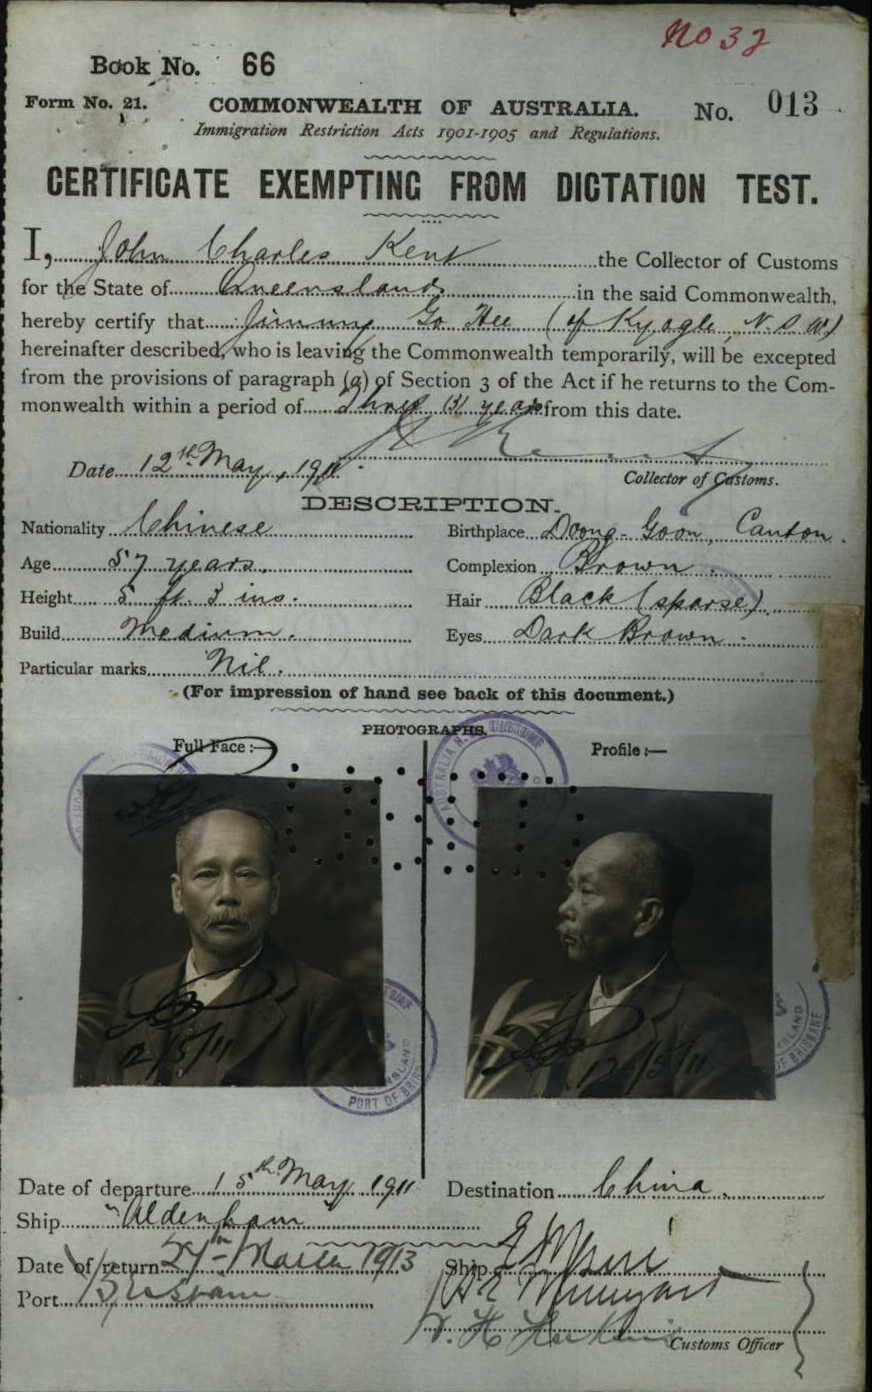 No 32
Book No. 66
Form No. 21. COMMONWEALTH OF AUSTRALIA. No. 013
Immigration Restriction Acts 1901-1905 and Regulations.
CERTIFICATE EXEMPTING FROM DICTATION TEST.
I, John Charles Kent the Collector of Customs
for the State of Queensland in the said Commonwealth,
hereby certify that Jimmy Go Hee (of Kyogle, N.S.W.)
hereinafter described, who is leaving the Commonwealth temporarily, will be excepted
from the provisions of paragraph (a) of Section 3 of the Act if he returns to the Com-
monwealth within a period of Three (3) years from this date.
Date 12th May, 1911.
Collector of Customs.
DESCRIPTION.
Nationality Chinese Birthplace Doong-Goon, Canton.
Age 57 years. Complexion Brown.
Height 5 ft. 3 ins. Hair Black (sparse).
Build Medium. Eyes Dark Brown.
Particular marks Nil.
(For impression of hand see back of this document.)
PHOTOGRAPHS.
Full Face:— Profile:—
12/5/11 12/5/11
PORT OF BRISBANE
Date of departure 15th May 1911 Destination China.
Ship "Aldenham
Date of return 27th March 1913 Ship Empire
Port Brisbane
Customs Officer